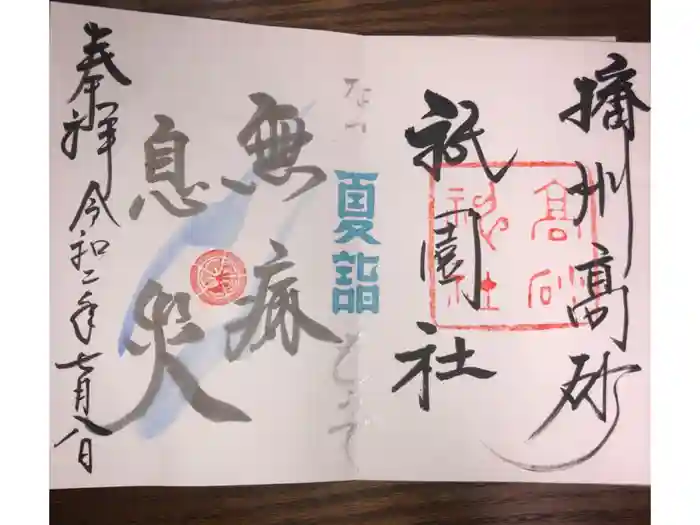 播州高砂
祇園社
高砂
神社
夏詣
無病
息災
奉拝 令和二年七月八日